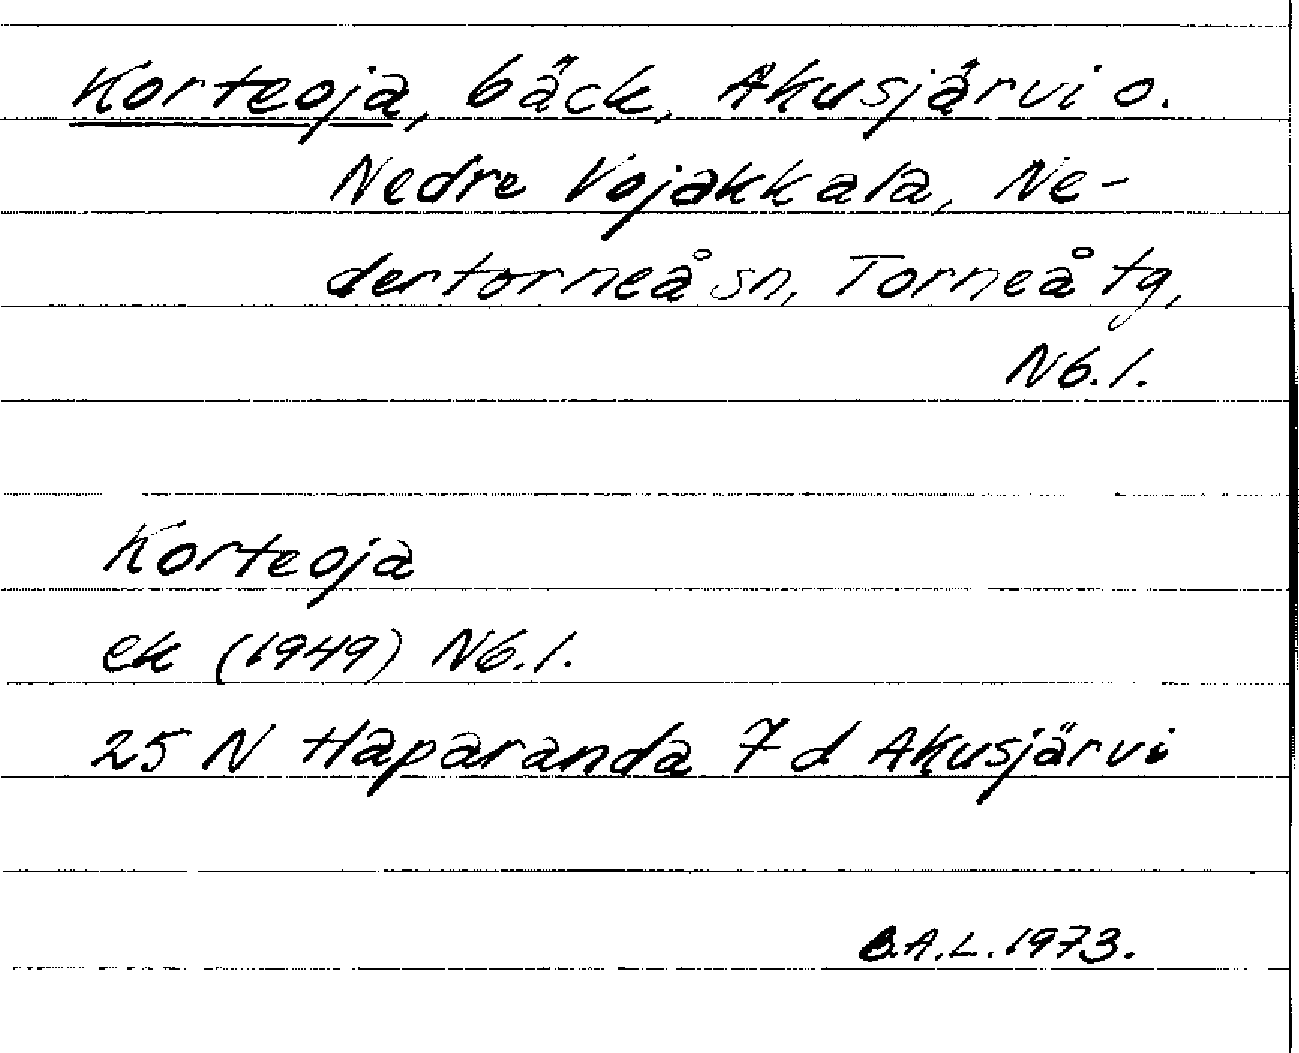 Korteoja, bäck, Akusjärvi o.
Nedre Vojakkala, Ne-
dertorneå sn, Torneå tg,
Nb.l.
Korteoja
ek (1949) Nb.l.
25 N Haparanda 7 d Akusjärvi
B.A.L. 1973.